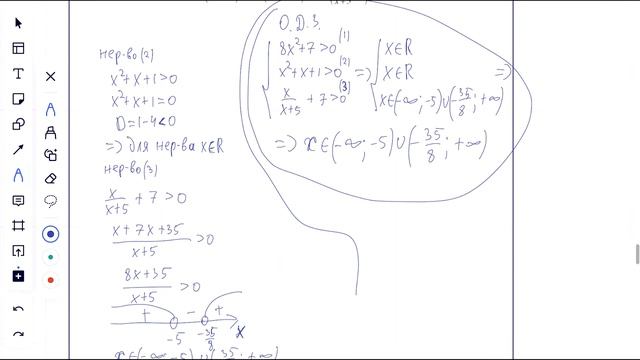 нер-во(2)
x²+x+1>0
x²+x+1=0
D=1-4<0
=> для нер-ва x∈R
нер-во(3)
x/(x+5) + 7 > 0
(x+7x+35)/(x+5) > 0
(8x+35)/(x+5) > 0
+ - +
-5 -35/8 x
О.Д.З.
8x²+7>0 (1) x∈R
x²+x+1>0 (2) => x∈R =>
x/(x+5) + 7>0 (3) x∈(-∞;-5)∪(-35/8;+∞)
=> x∈(-∞;-5)∪(-35/8;+∞)